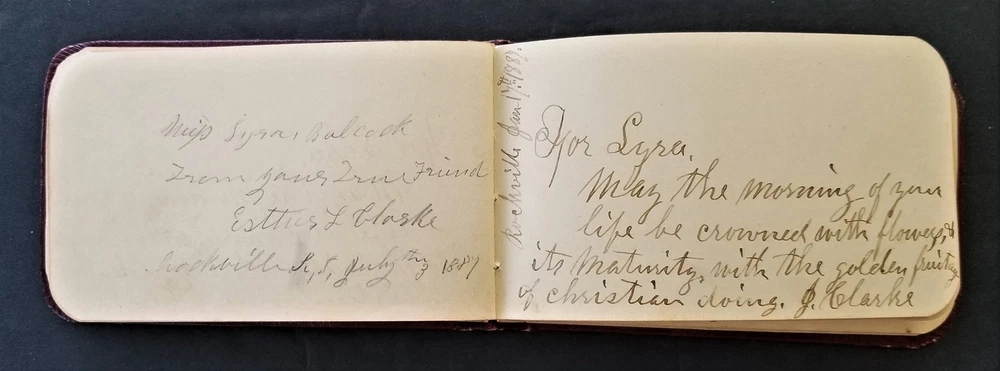 Miss Lyra Babcock
From your True Friend
Esther L Clarke
Rockville R, I, July 3 1887
Rockville Jan 17th 1887.
For Lyra.
May the morning of your
life be crowned with flowers, &
its Maturity, with the golden fruitage
of christian doing. J. Clarke